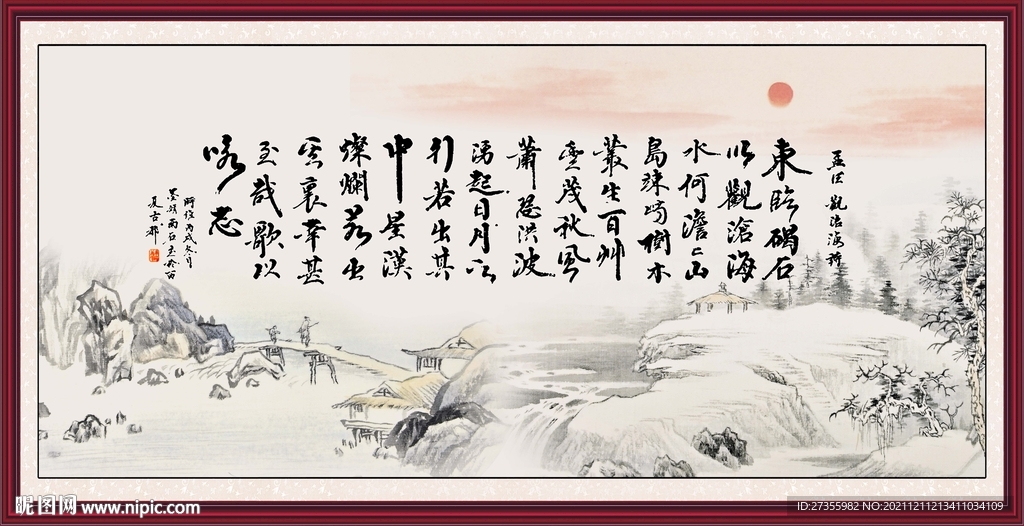 孟德觀滄海詩
東臨碣石
以觀滄海
水何澹〻山
島竦峙樹木
叢生百艸
豐茂秋風
蕭瑟洪波
湧起日月之
行若出其
中星漢
燦爛若出
其裏幸甚
至哉歌以
咏志
時在丙戌冬月
夏吉郡
昵图网 www.nipic.com
ID:27355982 NO:20211211213411034109